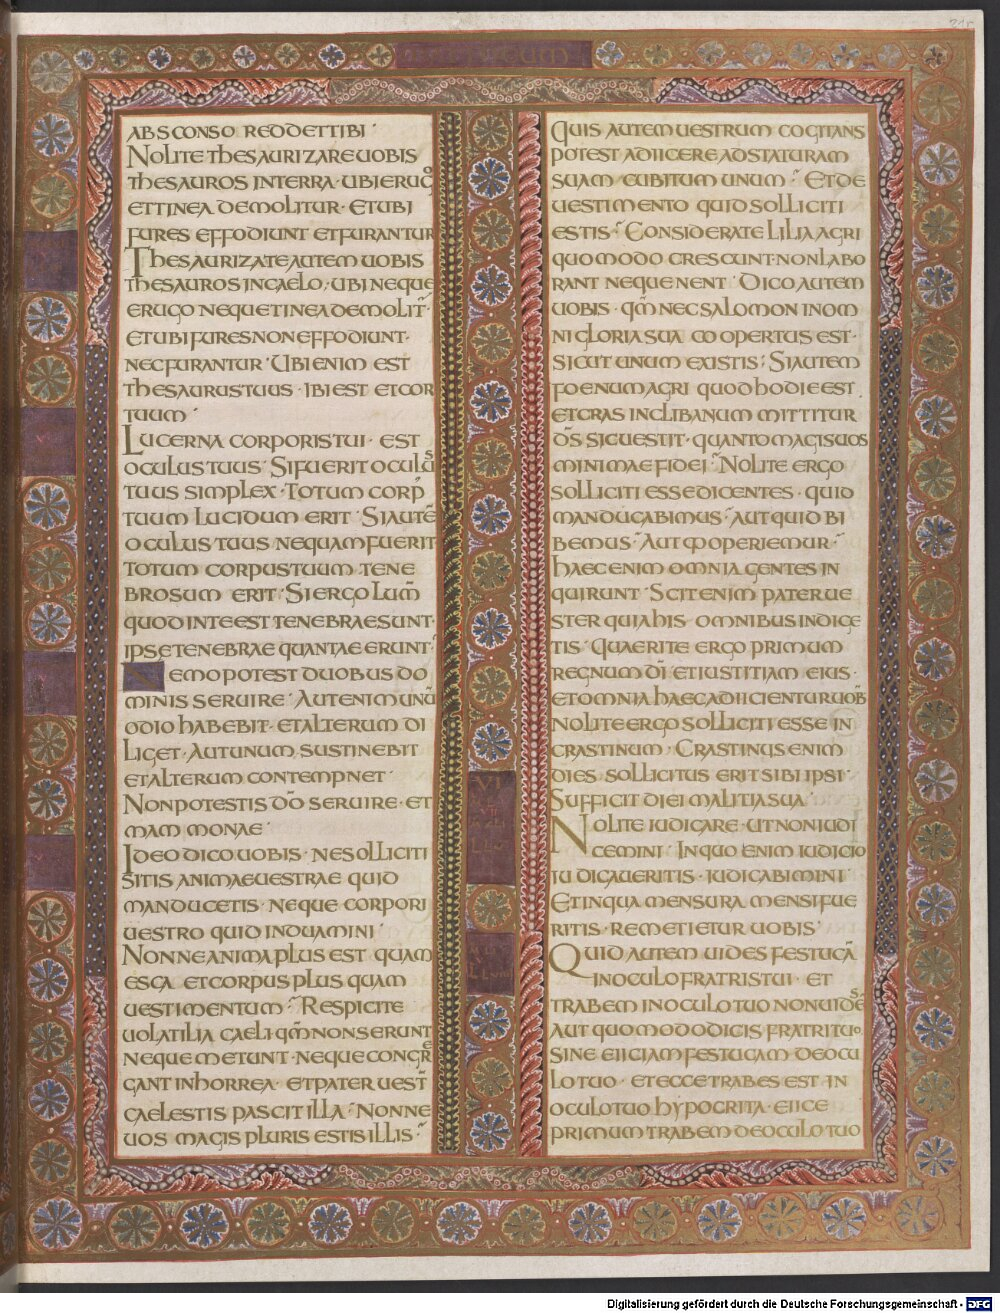 ABSCONSO REDDET TIBI
NOLITE THESAURIZARE UOBIS
THESAUROS IN TERRA · UBI ERUGO
ET TINEA DEMOLITUR · ET UBI
FURES EFFODIUNT ET FURANTUR
THESAURIZATE AUTEM UOBIS
THESAUROS IN CAELO · UBI NEQUE
ERUGO NEQUE TINEA DEMOLIT̄ ·
ET UBI FURES NON EFFODIUNT ·
NEC FURANTUR · UBI ENIM EST
THESAURUS TUUS · IBI EST ET COR
TUUM ·
LUCERNA CORPORIS TUI · EST
OCULUS TUUS · SI FUERIT OCULUS
TUUS SIMPLEX · TOTUM CORP
TUUM LUCIDUM ERIT · SI AUTĒ
OCULUS TUUS NEQUAM FUERIT
TOTUM CORPUS TUUM TENE
BROSUM ERIT · SI ERGO LUM̄
QUOD IN TE EST TENEBRAE SUNT ·
IPSE TENEBRAE QUANTAE ERUNT ·
NEMO POTEST DUOBUS DO
MINIS SERUIRE · AUT ENIM UNŪ
ODIO HABEBIT · ET ALTERUM DI
LIGET · AUT UNUM SUSTINEBIT
ET ALTERUM CONTEMPNET ·
NON POTESTIS DŌ SERUIRE · ET
MAMMONAE ·
IDEO DICO UOBIS · NE SOLLICITI
SITIS ANIMAE UESTRAE QUID
MANDUCETIS · NEQUE CORPORI
UESTRO QUID INDUAMINI ·
NONNE ANIMA PLUS EST QUAM
ESCA · ET CORPUS PLUS QUAM
UESTIMENTUM · RESPICITE
UOLATILIA CAELI QM̄ NON SERUNT
NEQUE METUNT · NEQUE CONGRE
GANT IN HORREA · ET PATER UEST̄
CAELESTIS PASCIT ILLA · NONNE
UOS MAGIS PLURIS ESTIS ILLIS ·
QUIS AUTEM UESTRUM COGITANS
POTEST ADIICERE AD STATURAM
SUAM CUBITUM UNUM · ET DE
UESTIMENTO QUID SOLLICITI
ESTIS · CONSIDERATE LILIA AGRI
QUOMODO CRESCUNT · NON LABO
RANT NEQUE NENT · DICO AUTEM
UOBIS · QM̄ NEC SALOMON IN OM
NI GLORIA SUA COOPERTUS EST ·
SICUT UNUM EX ISTIS · SI AUTEM
FOENUM AGRI QUOD HODIE EST
ET CRAS IN CLIBANUM MITTITUR
DS̄ SIC UESTIT · QUANTO MAGIS UOS
MINIMAE FIDEI · NOLITE ERGO
SOLLICITI ESSE DICENTES · QUID
MANDUCABIMUS · AUT QUID BI
BEMUS · AUT QUO OPERIEMUR ·
HAEC ENIM OMNIA GENTES IN
QUIRUNT · SCIT ENIM PATER UE
STER QUIA HIS OMNIBUS INDIGE
TIS · QUAERITE ERGO PRIMUM
REGNUM DĪ ET IUSTITIAM EIUS ·
ET OMNIA HAEC ADIICIENTUR UOB̄
NOLITE ERGO SOLLICITI ESSE IN
CRASTINUM · CRASTINUS ENIM
DIES SOLLICITUS ERIT SIBI IPSI ·
SUFFICIT DIEI MALITIA SUA ·
NOLITE IUDICARE · UT NON IUDI
CEMINI · IN QUO ENIM IUDICIO
IUDICAUERITIS · IUDICABIMINI ·
ET IN QUA MENSURA MENSI FUE
RITIS · REMETIETUR UOBIS ·
QUID AUTEM UIDES FESTUCĀ
IN OCULO FRATRIS TUI · ET
TRABEM IN OCULO TUO NON UIDES
AUT QUOMODO DICIS FRATRI TUO
SINE EIICIAM FESTUCAM DE OCU
LO TUO · ET ECCE TRABES EST IN
OCULO TUO HYPOCRITA · EIICE
PRIMUM TRABEM DE OCULO TUO
Digitalisierung gefördert durch die Deutsche Forschungsgemeinschaft - DFG